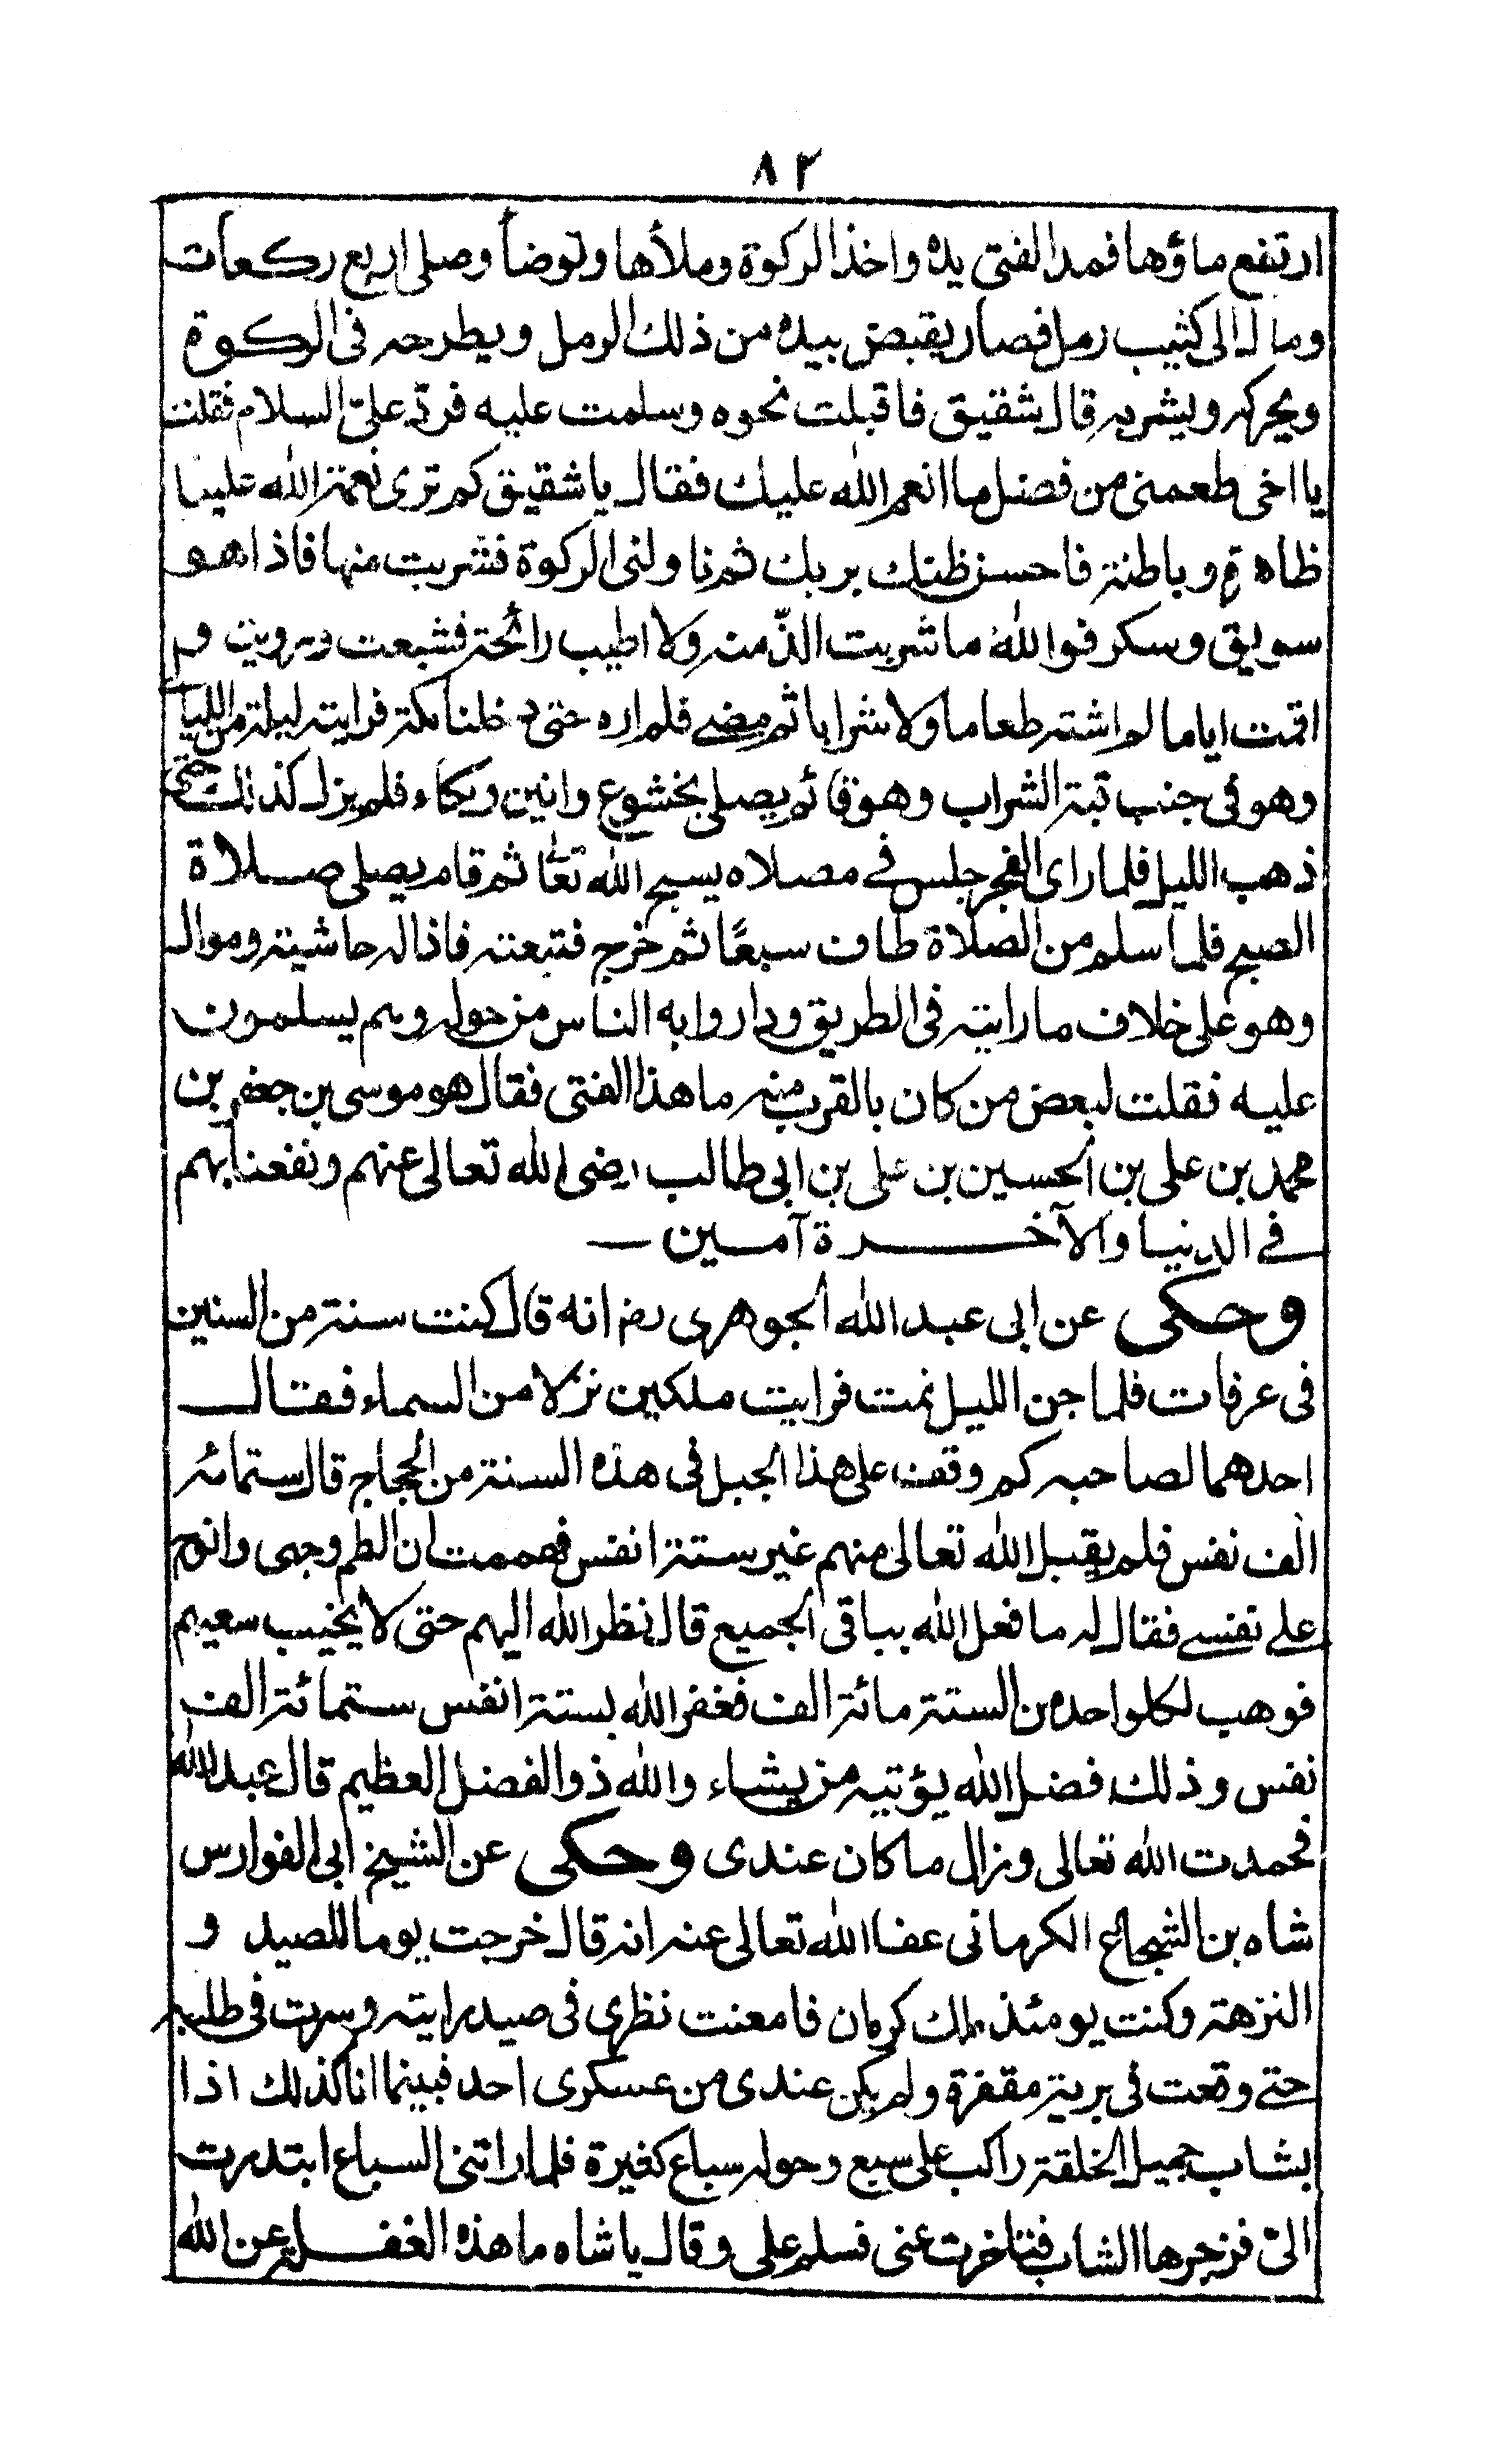 ٨٢
ارتفع ماؤها فمد الفتى يده واخذ الركوة وملأها وتوضأ وصلى اربع ركعات
ومال الى كثيب رمل فصار يقبض بيده من ذلك الرمل ويطرحه فى الركوة
ويحركه ويشربه قال شقيق فاقبلت نحوه وسلمت عليه فردّ علىّ السلام فقلت
يا اخى طعمنى من فضل ما انعم الله عليك فقال يا شقيق كم ترى نعمة الله علينا
ظاهرة وباطنة فاحسن ظنك بربك ثم ناولنى الركوة فشربت منها فاذا هو
سويق وسكر فوالله ما شربت الذّ منه ولا اطيب رائحة فشبعت ورويت و
اقمت اياما لم اشته طعاما ولا شرابا ثم مضى فلم اره حتى دخلنا مكة فرايته ليلة من الليا
وهو فى جنب قبة الشراب وهو قائم يصلى بخشوع وانين وبكاء فلم يزل كذلك حتى
ذهب الليل فلما راى الفجر جلس فى مصلاه يسبح الله تعالى ثم قام يصلى صلاة
الصبح فلما سلم من الصلاة طاف سبعًا ثم خرج فتبعته فاذا له حاشية وموال
وهو على خلاف ما رايته فى الطريق ودار وا به الناس من حوله وهم يسلمون
عليه فقلت لبعض من كان بالقرب منه ما هذا الفتى فقال هو موسى بن جعفر بن
محمد بن على بن الحسين بن على بن ابى طالب رضى الله تعالى عنهم ونفعنا بهم
فى الدنيا والآخرة آمين
وحكى عن ابى عبد الله الجوهرى رضـ انه قال كنت سنة من السنين
فى عرفات فلما جن الليل نمت فرايت ملكين نزلا من السماء فقال
احدهما لصاحبه كم وقف على هذا الجبل فى هذه السنة من الحجاج قال ستمائة
الف نفس فلم يقبل الله تعالى منهم غير ستة انفس فهممت ان الطم وجهى وانوح
على نفسى فقال له ما فعل الله بباقى الجميع قال نظر الله اليهم حتى لا يخيب سعيهم
فوهب لكل واحد من الستة مائة الف فغفر الله بستة انفس ستمائة الف
نفس وذلك فضل الله يؤتيه من يشاء والله ذو الفضل العظيم قال عبد الله
فحمدت الله تعالى وزال ما كان عندى وحكى عن الشيخ ابى الفوارس
شاه بن الشجاع الكرمانى عفا الله تعالى عنه انه قال خرجت يوما للصيد و
النزهة وكنت يومئذ ملك كرمان فامعنت نظرى فى صيد رايته وسرت فى طلبه
حتى وقعت فى برية مقفرة ولم يكن عندى من عسكرى احد فبينما انا كذلك اذا
بشاب جميل الخلقة راكب على سبع وحوله سباع كثيرة فلما راتنى السباع ابتدرت
الىّ فزجرها الشاب فتاخرت عنى فسلم على وقال يا شاه ما هذه الغفلة عن الله